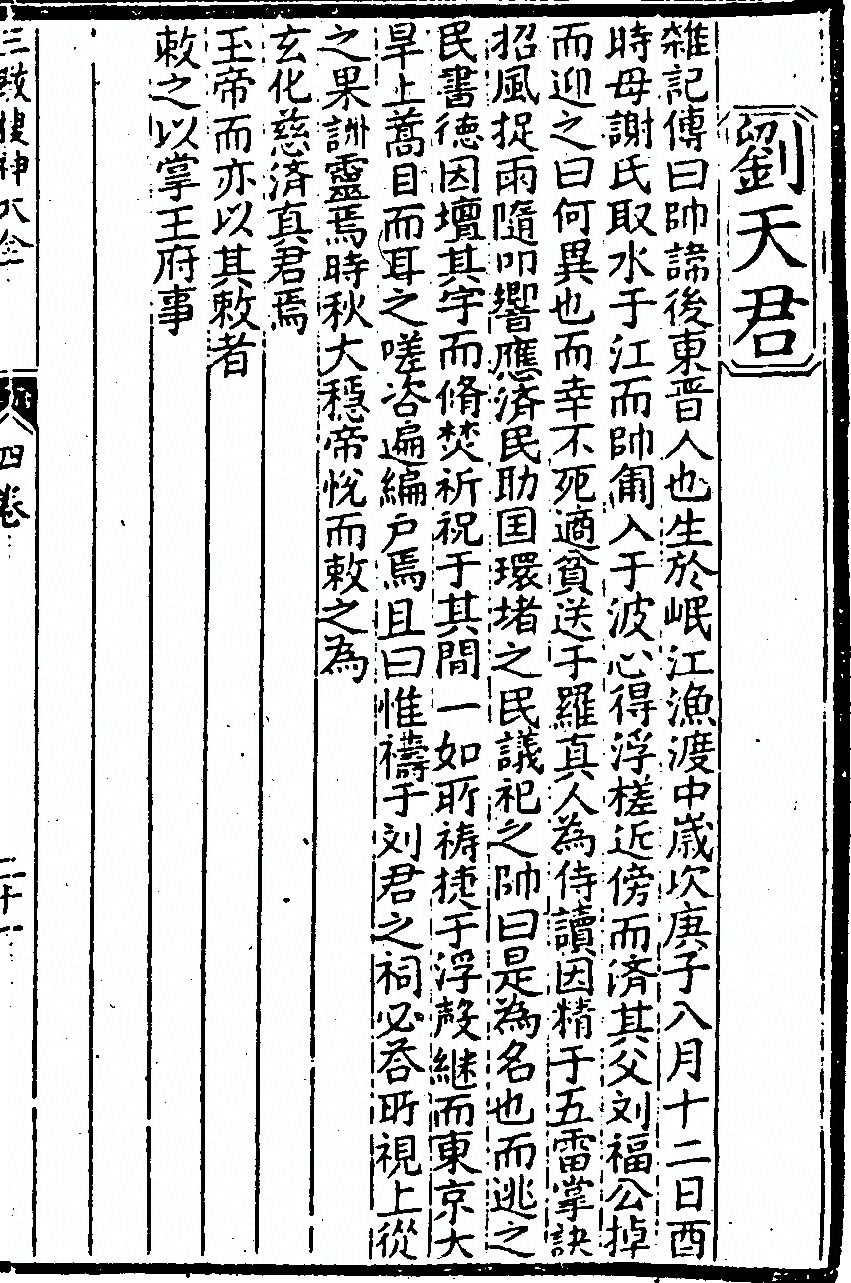 劉天君
雜記傳曰帥諱後東晋人也生於岷江漁渡中歲次庚子八月十二日酉
時母謝氏取水于江而帥匍入于波心得浮槎近傍而済其父刘福公掉
而迎之曰何異也而幸不死適貧送于羅真人為侍讀因精于五雷掌訣
招風捉雨隨叩響應済民助国環堵之民議祀之帥曰是為名也而逃之
民書徳因壇其宇而脩焚祈祝于其間一如所祷捷于浮殸継而東京大
旱上蒿目而耳之嗟咨遍編戸焉且曰惟禱于刘君之祠必荅所視上從
之果詶靈焉時秋大穏帝悅而敕之為
玄化慈済真君焉
玉帝而亦以其敕者
敕之以掌玉府事
三教搜神大全
四卷
二十一